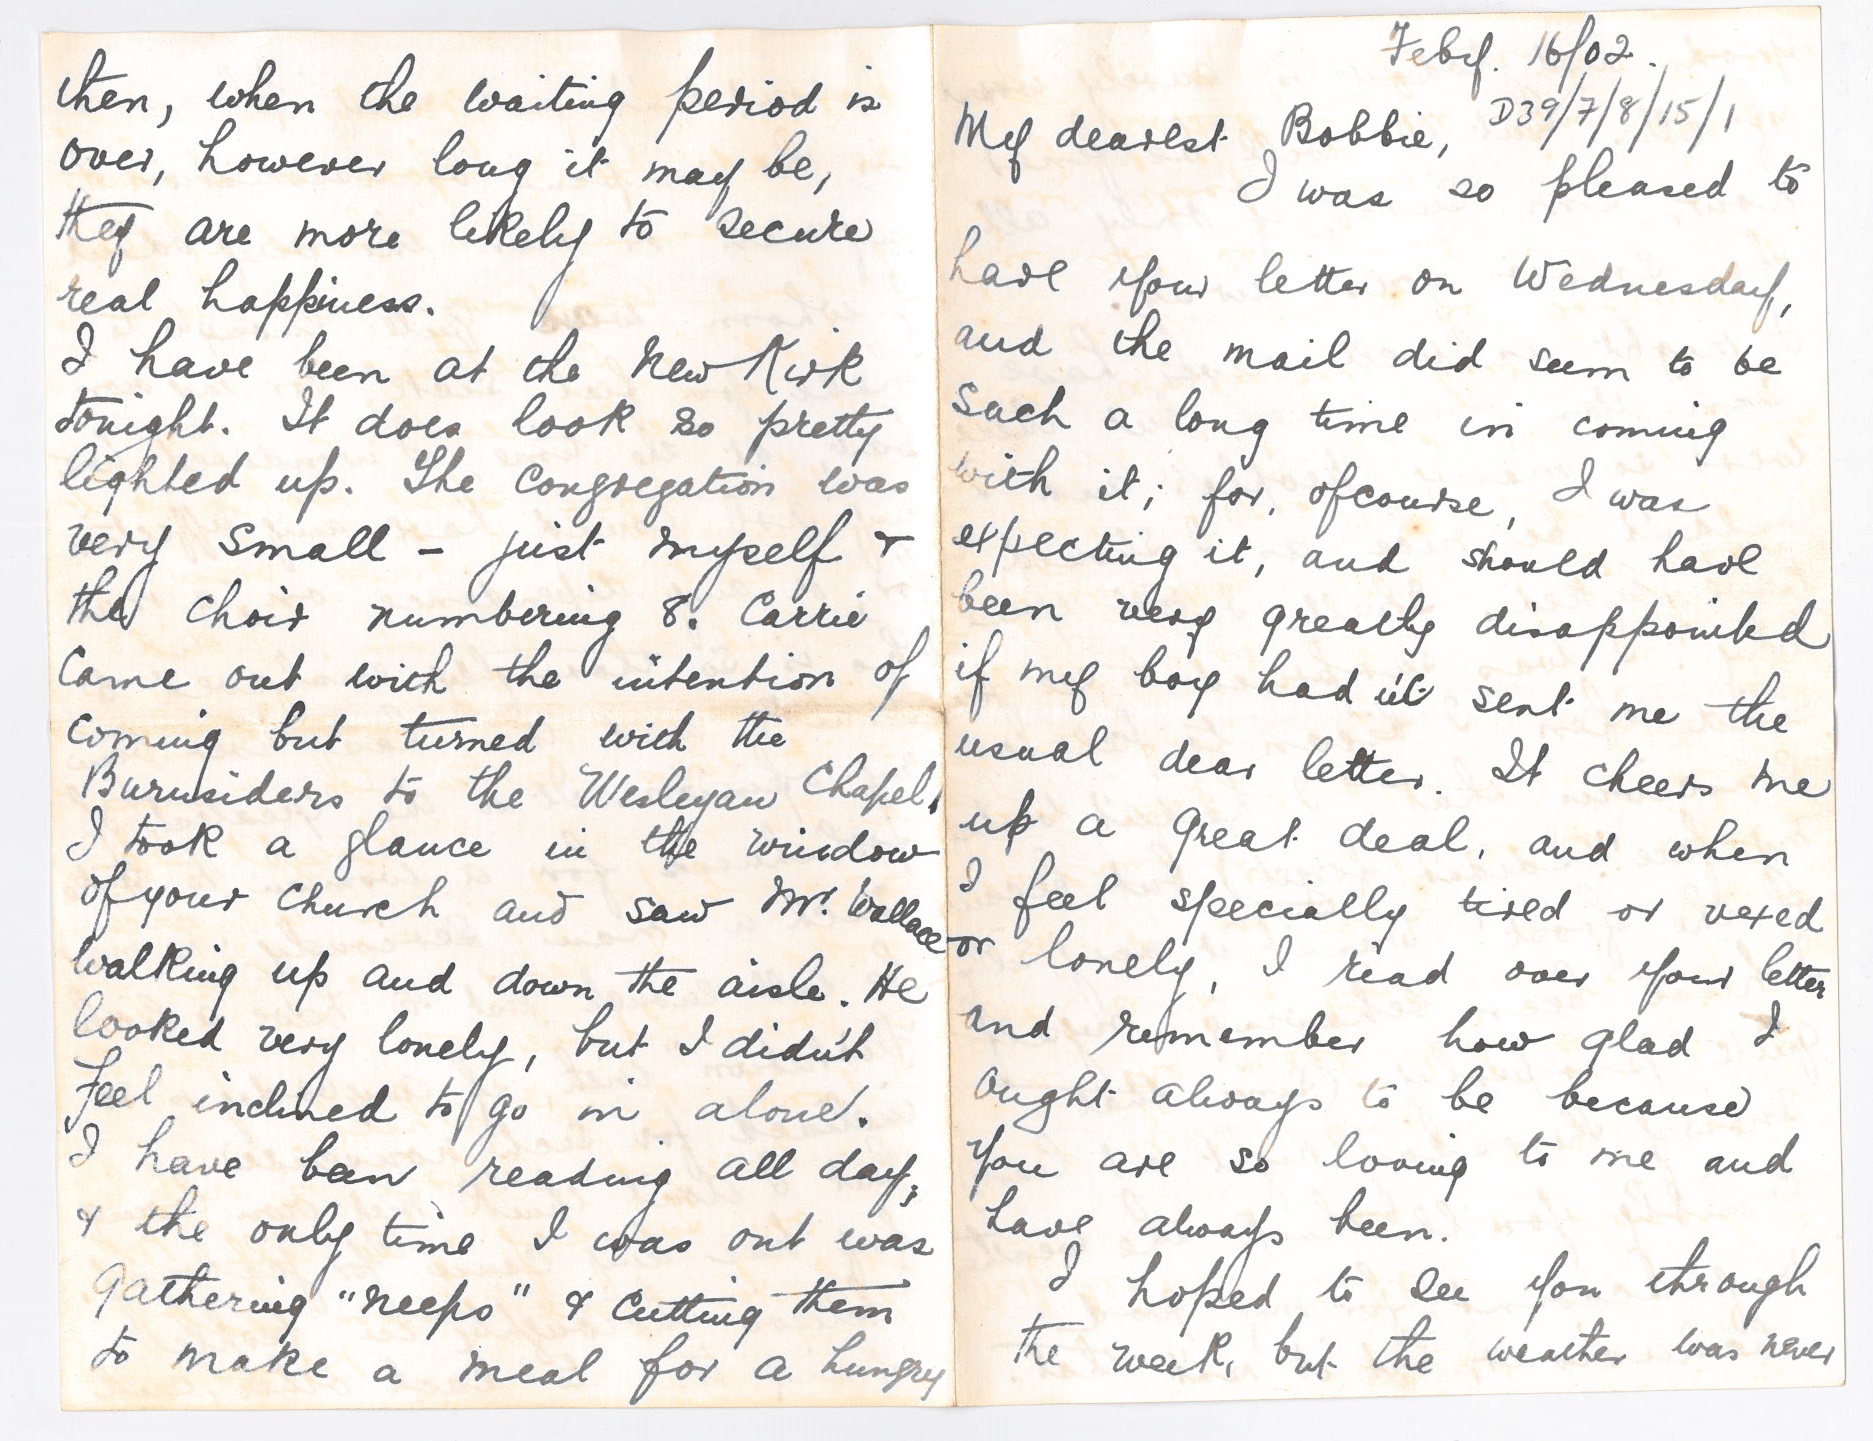 then, when the waiting period is
over, however long it may be,
they are more likely to secure
real happiness.
I have been at the New Kirk
tonight. It does look so pretty
lighted up. The congregation was
very small – just myself &
the choir numbering 8. Carrie
came out with the intention of
coming but turned with the
Burnsiders to the Wesleyan Chapel.
I took a glance in the window
of your church and saw Mr. Wallace
walking up and down the aisle. He
looked very lonely, but I didn't
feel inclined to go in alone.
I have been reading all day,
& the only time I was out was
gathering "neeps" & cutting them
to make a meal for a hungry
Feby. 16/02.
D39/7/8/15/1
My dearest Bobbie,
I was so pleased to
have your letter on Wednesday,
and the mail did seem to be
such a long time in coming
with it; for, ofcourse, I was
expecting it, and should have
been very greatly disappointed
if my boy had n't sent me the
usual dear letter. It cheers me
up a great deal, and when
I feel specially tired or vexed
or lonely, I read over your letter
and remember how glad I
ought always to be because
you are so loving to me and
have always been.
I hoped to see you through
the week, but the weather was never